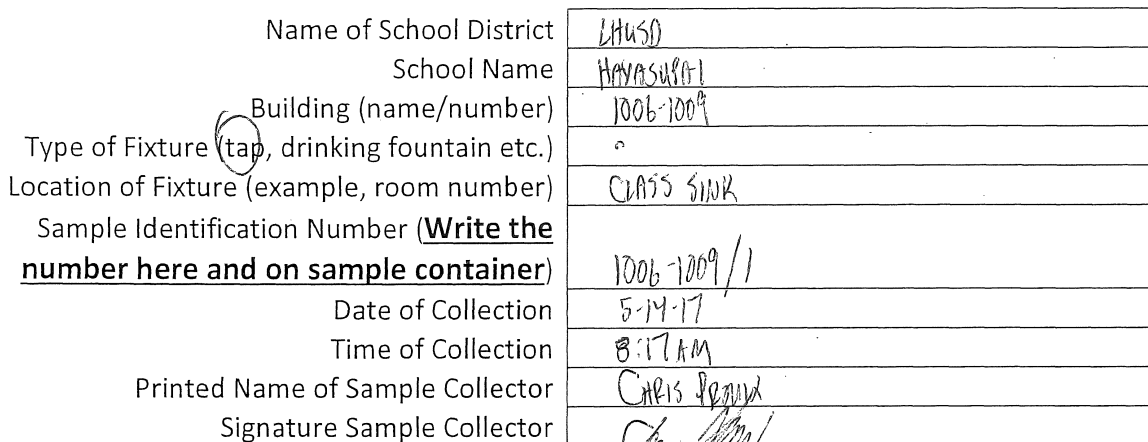 Name of School District LHUSD
School Name HAVASUPAI
Building (name/number) 1006-1009
Type of Fixture (tap, drinking fountain etc.)
Location of Fixture (example, room number) CLASS SINK
Sample Identification Number (Write the
number here and on sample container) 1006-1009/1
Date of Collection 5-14-17
Time of Collection 8:17 AM
Printed Name of Sample Collector CHRIS
Signature Sample Collector